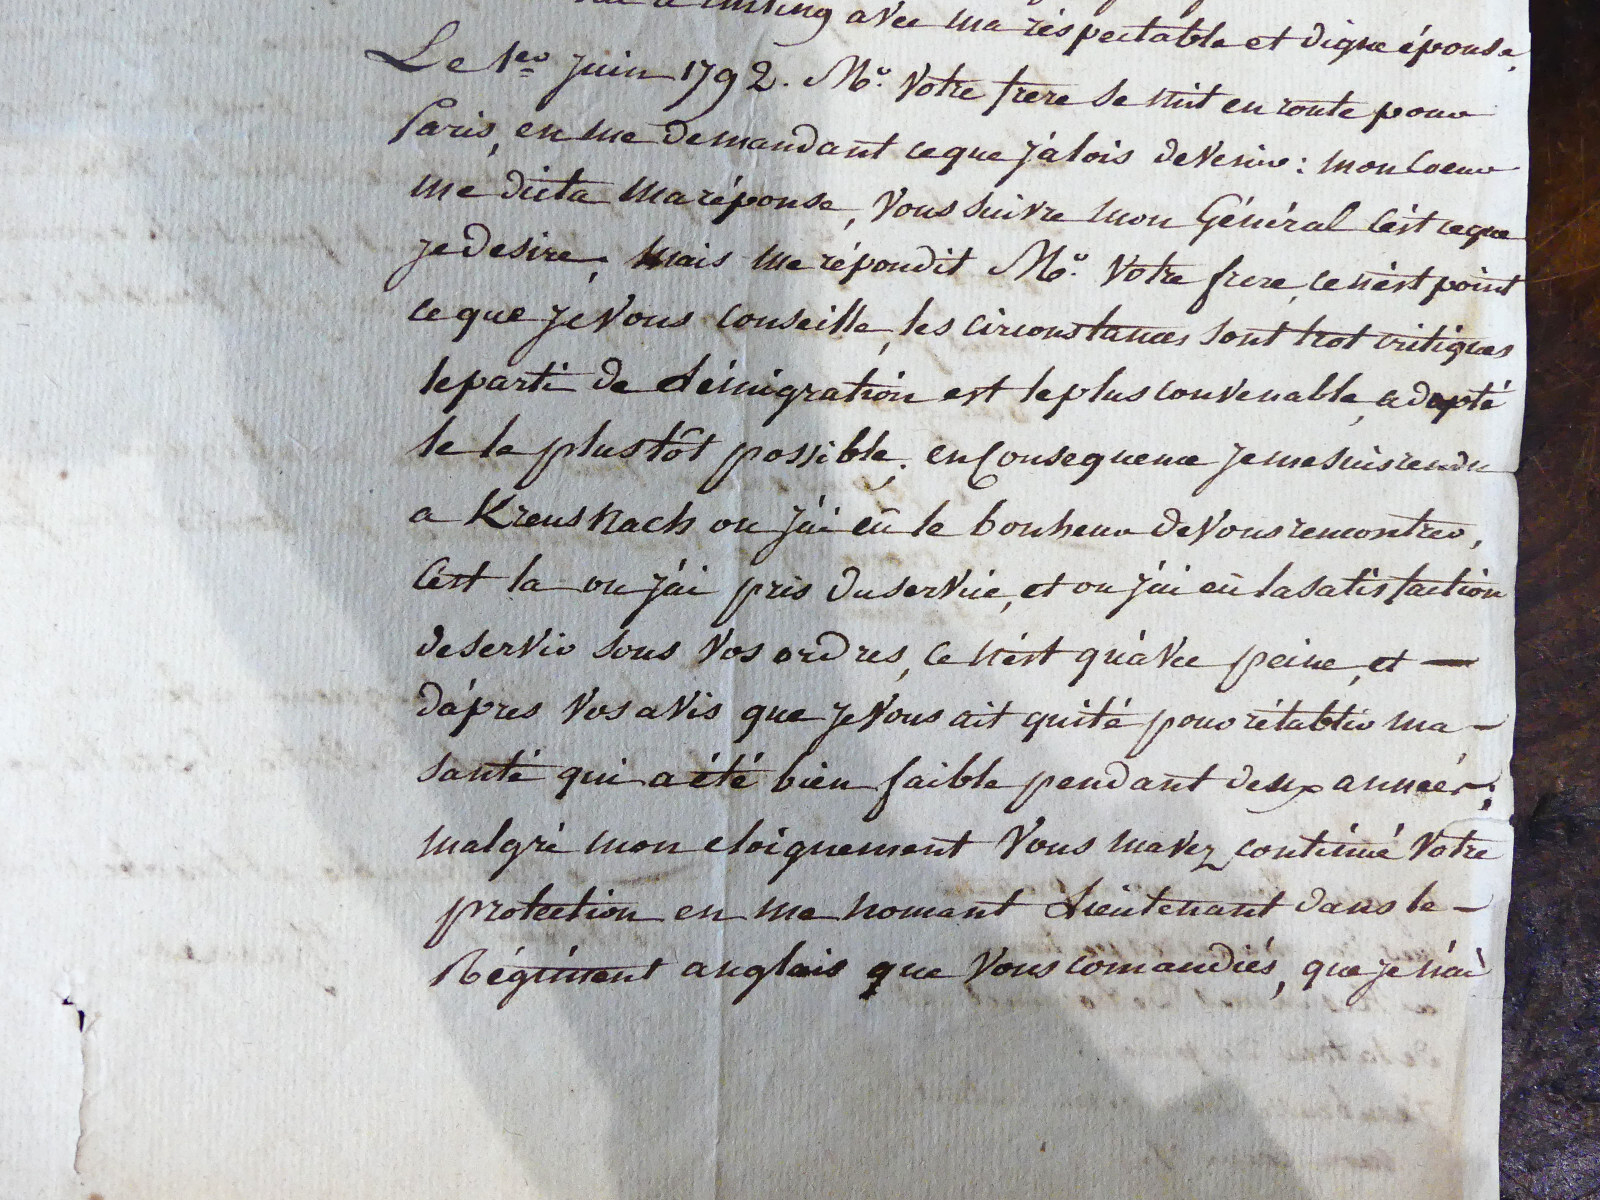 avec ma réspectable et digne épouse,
Le 1er Juin 1792. Mr. Votre frere se mit en route pour
Paris, en me demandant ce que j'alois devenir : mon Coeur
me dicta ma réponse, Vous suivre mon Général c'est ce que
je desire, mais me répondit Mr. Votre frere, ce n'est point
ce que je Vous conseille, les circonstances sont trot critiques
le parti de L'émigration est le plus convenable, adopté
le le plustôt possible; en Consequence je me suis rendu
a Kreusnach ou j'ai eû le bonheur de Vous rencontrer,
C'est la ou j'ai pris du service, et ou j'ai eû la satisfaction
de servir sous Vos ordres, ce n'est qu'avec peine, et —
d'après Vos avis que je Vous ait quité pour rétablir ma –
santé qui a été bien faible pendant deux années;
malgré mon eloignement Vous m'avez continué Votre
protection en me nomant Lieutenant dans le –
Régiment anglais que Vous comandiés, que je n'ai